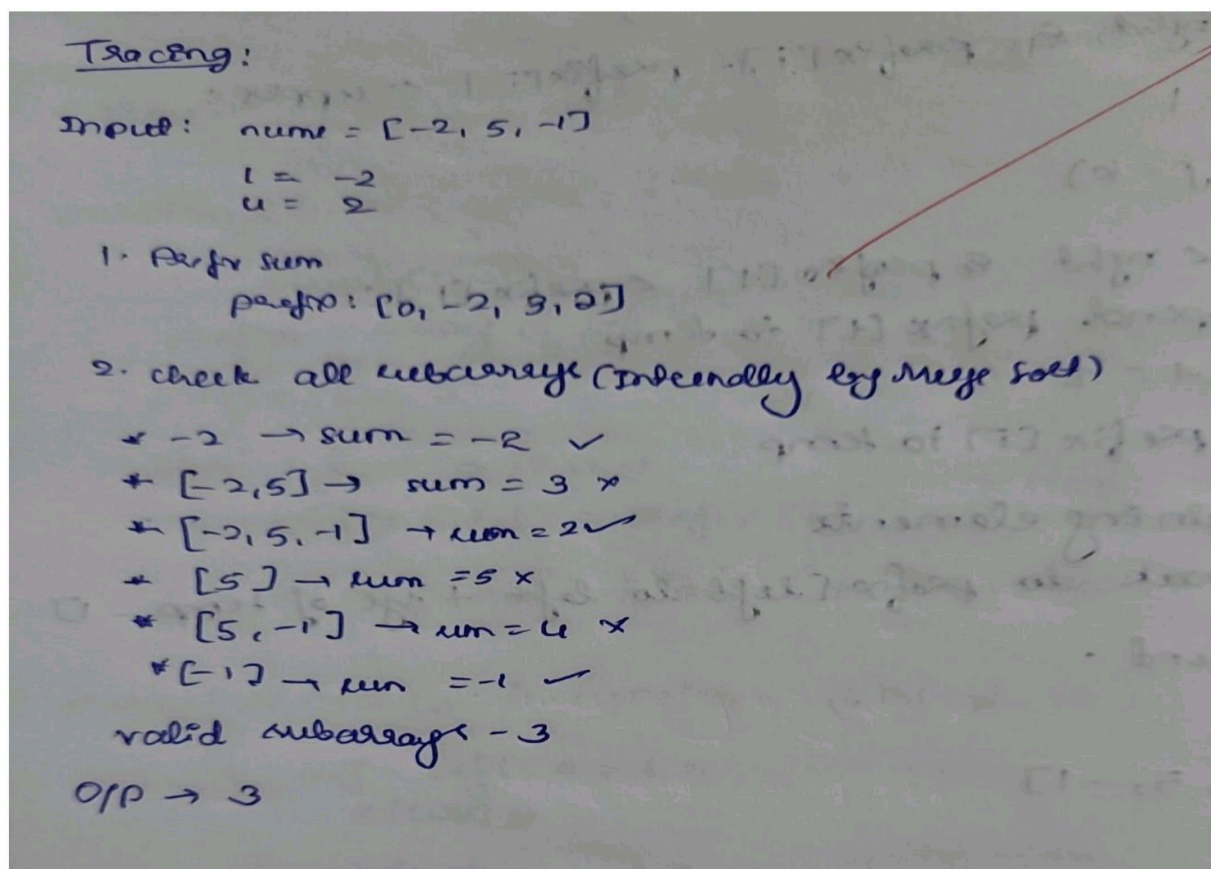 Tracing:
Input: nums = [-2, 5, -1]
l = -2
u = 2
1. Prefix sum
prefix: [0, -2, 3, 2]
2. check all subarrays (Internally by Merge Sort)
* -2 → sum = -2 ✓
* [-2,5] → sum = 3 ×
* [-2, 5, -1] → sum = 2 ✓
* [5] → sum = 5 ×
* [5, -1] → sum = 4 ×
* [-1] → sum = -1 ✓
valid subarrays - 3
O/P → 3